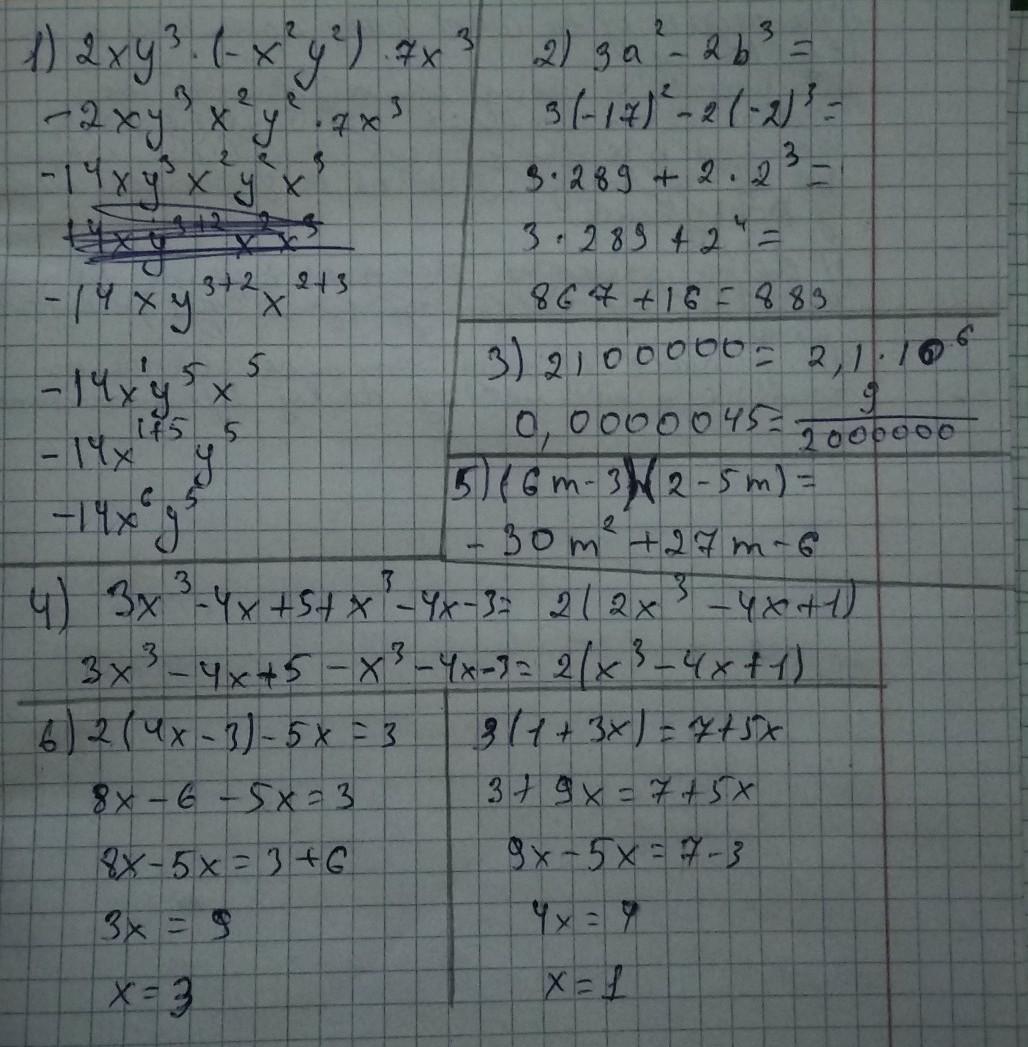 1) 2xy³ · (-x²y²) · 7x³
-2xy³x²y² · 7x³
-14xy³x²y²x³
-14xy³⁺²x²⁺³
-14x¹y⁵x⁵
-14x¹⁺⁵y⁵
-14x⁶y⁵
2) 3a² - 2b³ =
3(-17)² - 2(-2)³ =
3 · 289 + 2 · 2³ =
3 · 289 + 2⁴ =
867 + 16 = 883
3) 2100000 = 2,1 · 10⁶
0,0000045 = 9/2000000
5) (6m-3)(2-5m) =
-30m² + 27m - 6
4) 3x³ - 4x + 5 + x³ - 4x - 3 = 2(2x³ - 4x + 1)
3x³ - 4x + 5 - x³ - 4x - 3 = 2(x³ - 4x + 1)
6) 2(4x - 3) - 5x = 3
8x - 6 - 5x = 3
8x - 5x = 3 + 6
3x = 9
x = 3
3(1 + 3x) = 7 + 5x
3 + 9x = 7 + 5x
9x - 5x = 7 - 3
4x = 4
x = 1